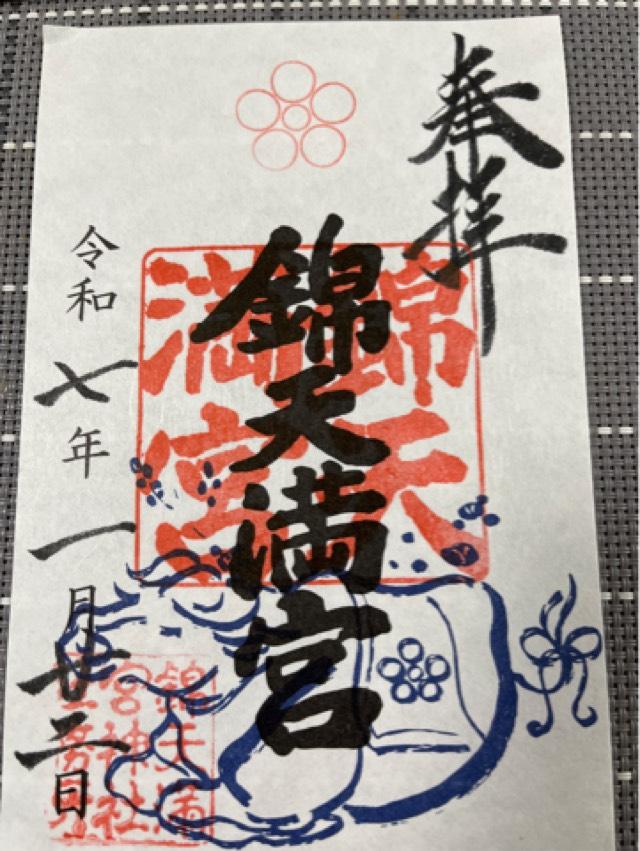 奉拝
錦天
満宮
錦天満宮
令和七年一月廿二日
錦天満
宮神社